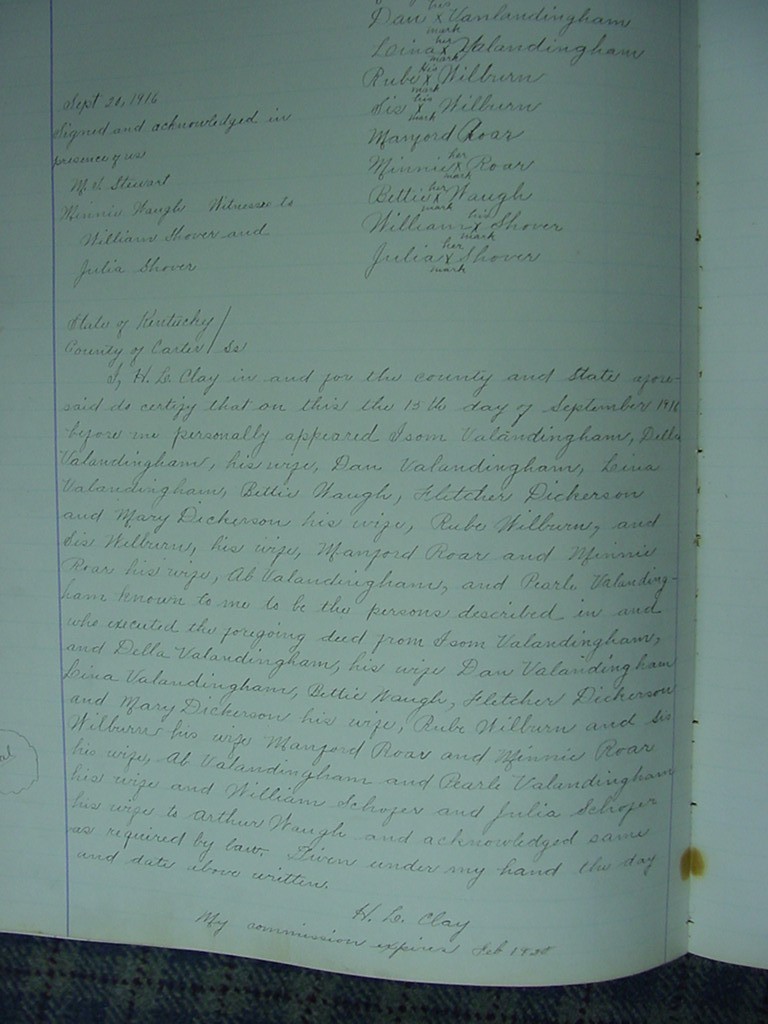 his
Dan X Vanlandingham
mark
her
Lina X Valandingham
mark
His
Rube X Wilburn
mark
his
Sis X Wilburn
mark
Manford Roar
her
Minnie X Roar
mark
her
Bettie X Waugh
mark
his
William X Shover
mark
her
Julia X Shover
mark
Sept 21, 1916
Signed and acknowledged in
presence of us
M. V. Stewart
Minnie Waugh Witnesses to
William Shover and
Julia Shover
State of Kentucky /
County of Carter / Ss
I, H. L. Clay in and for the county and State afore-
said do certify that on this the 15th day of September 1916
before me personally appeared Isom Valandingham, Della
Valandingham, his wife, Dan Valandingham, Lina
Valandingham, Bettie Waugh, Fletcher Dickerson
and Mary Dickerson his wife, Rube Wilburn, and
Sis Wilburn, his wife, Manford Roar and Minnie
Roar his wife, Ab Valandingham, and Pearle Valanding-
ham known to me to be the persons described in and
who executed the foregoing deed from Isom Valandingham,
and Della Valandingham, his wife Dan Valandingham
Lina Valandingham, Bettie Waugh, Fletcher Dickerson
and Mary Dickerson his wife, Rube Wilburn and Sis
Wilburn his wife Manford Roar and Minnie Roar
his wife, Ab Valandingham and Pearle Valandingham
his wife and William Schofer and Julia Schofer
his wife to Arthur Waugh and acknowledged same
as required by law. Given under my hand the day
and date above written.
H. L. Clay
My commission expires Feb 1920